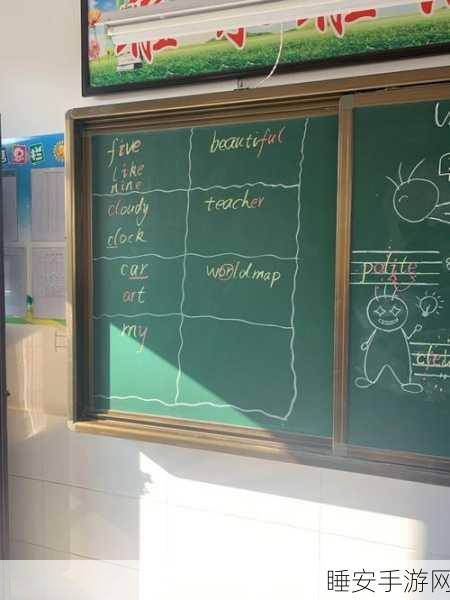 five
like
nine
cloudy
clock
car
art
my
beautiful
teacher
world map
polite
睡安手游网